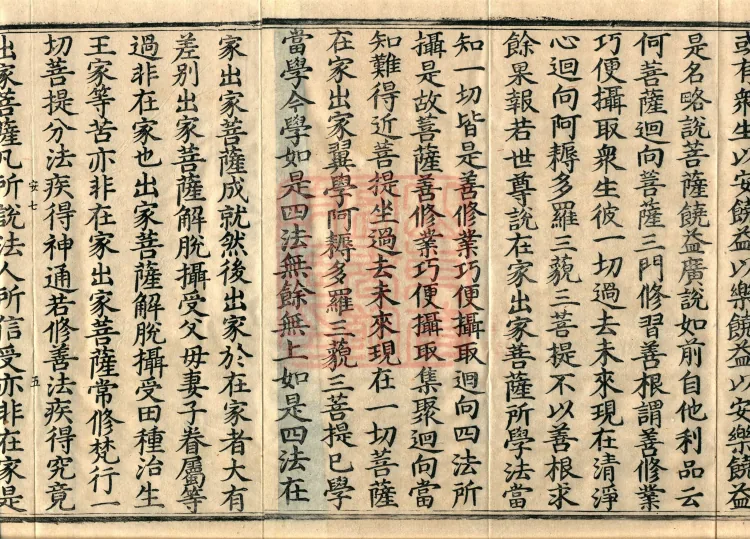 或有衆生以安饒益以樂饒益以安樂饒益
是名略說菩薩饒益廣說如前自他利品云
何菩薩迴向菩薩三門修習善根謂善修業
巧便攝取衆生彼一切過去未來現在清淨
心迴向阿耨多羅三藐三菩提不以善根求
餘果報若世尊說在家出家菩薩所學法當
知一切皆是善修業巧便攝取迴向四法所
攝是故菩薩善修業巧便攝取集聚迴向當
知難得近菩提坐過去未來現在一切菩薩
在家出家翼學阿耨多羅三藐三菩提已學
當學今學如是四法無餘無上如是四法在
家出家菩薩成就然後出家於在家者大有
差別出家菩薩解脫攝受父母妻子眷屬等
過非在家也出家菩薩解脫攝受田種治生
王家等苦亦非在家出家菩薩常修梵行一
切菩提分法疾得神通若修善法疾得究竟
安七 五
出家菩薩凡所說法人所信受亦非在家是